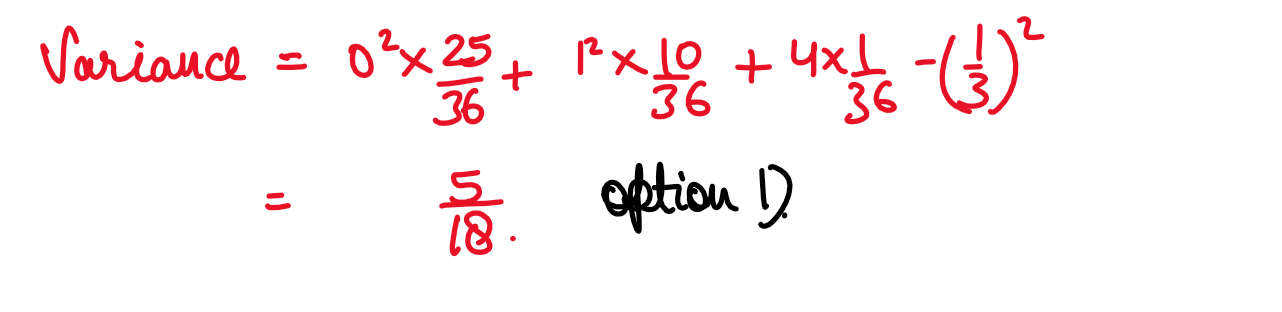 Variance = 0² × 25/36 + 1² × 10/36 + 4 × 1/36 - (1/3)²
= 5/18. option D.